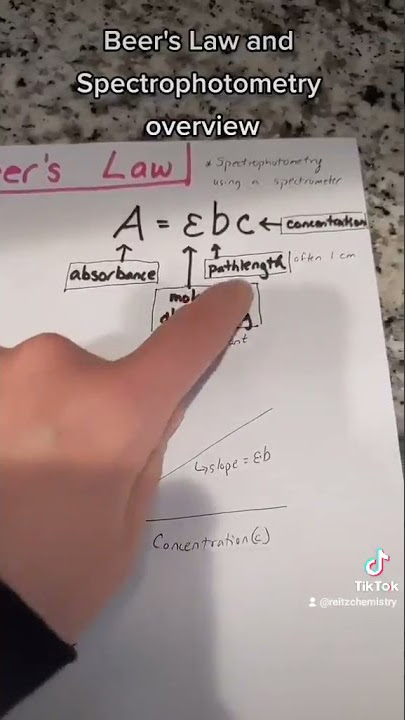 Beer's Law and
Spectrophotometry
overview
er's Law
* Spectrophotometry
using a spectrometer
A = εbc ← concentration
absorbance
pathlength
often 1 cm
↳slope = εb
Concentration(c)
TikTok
@reitzchemistry